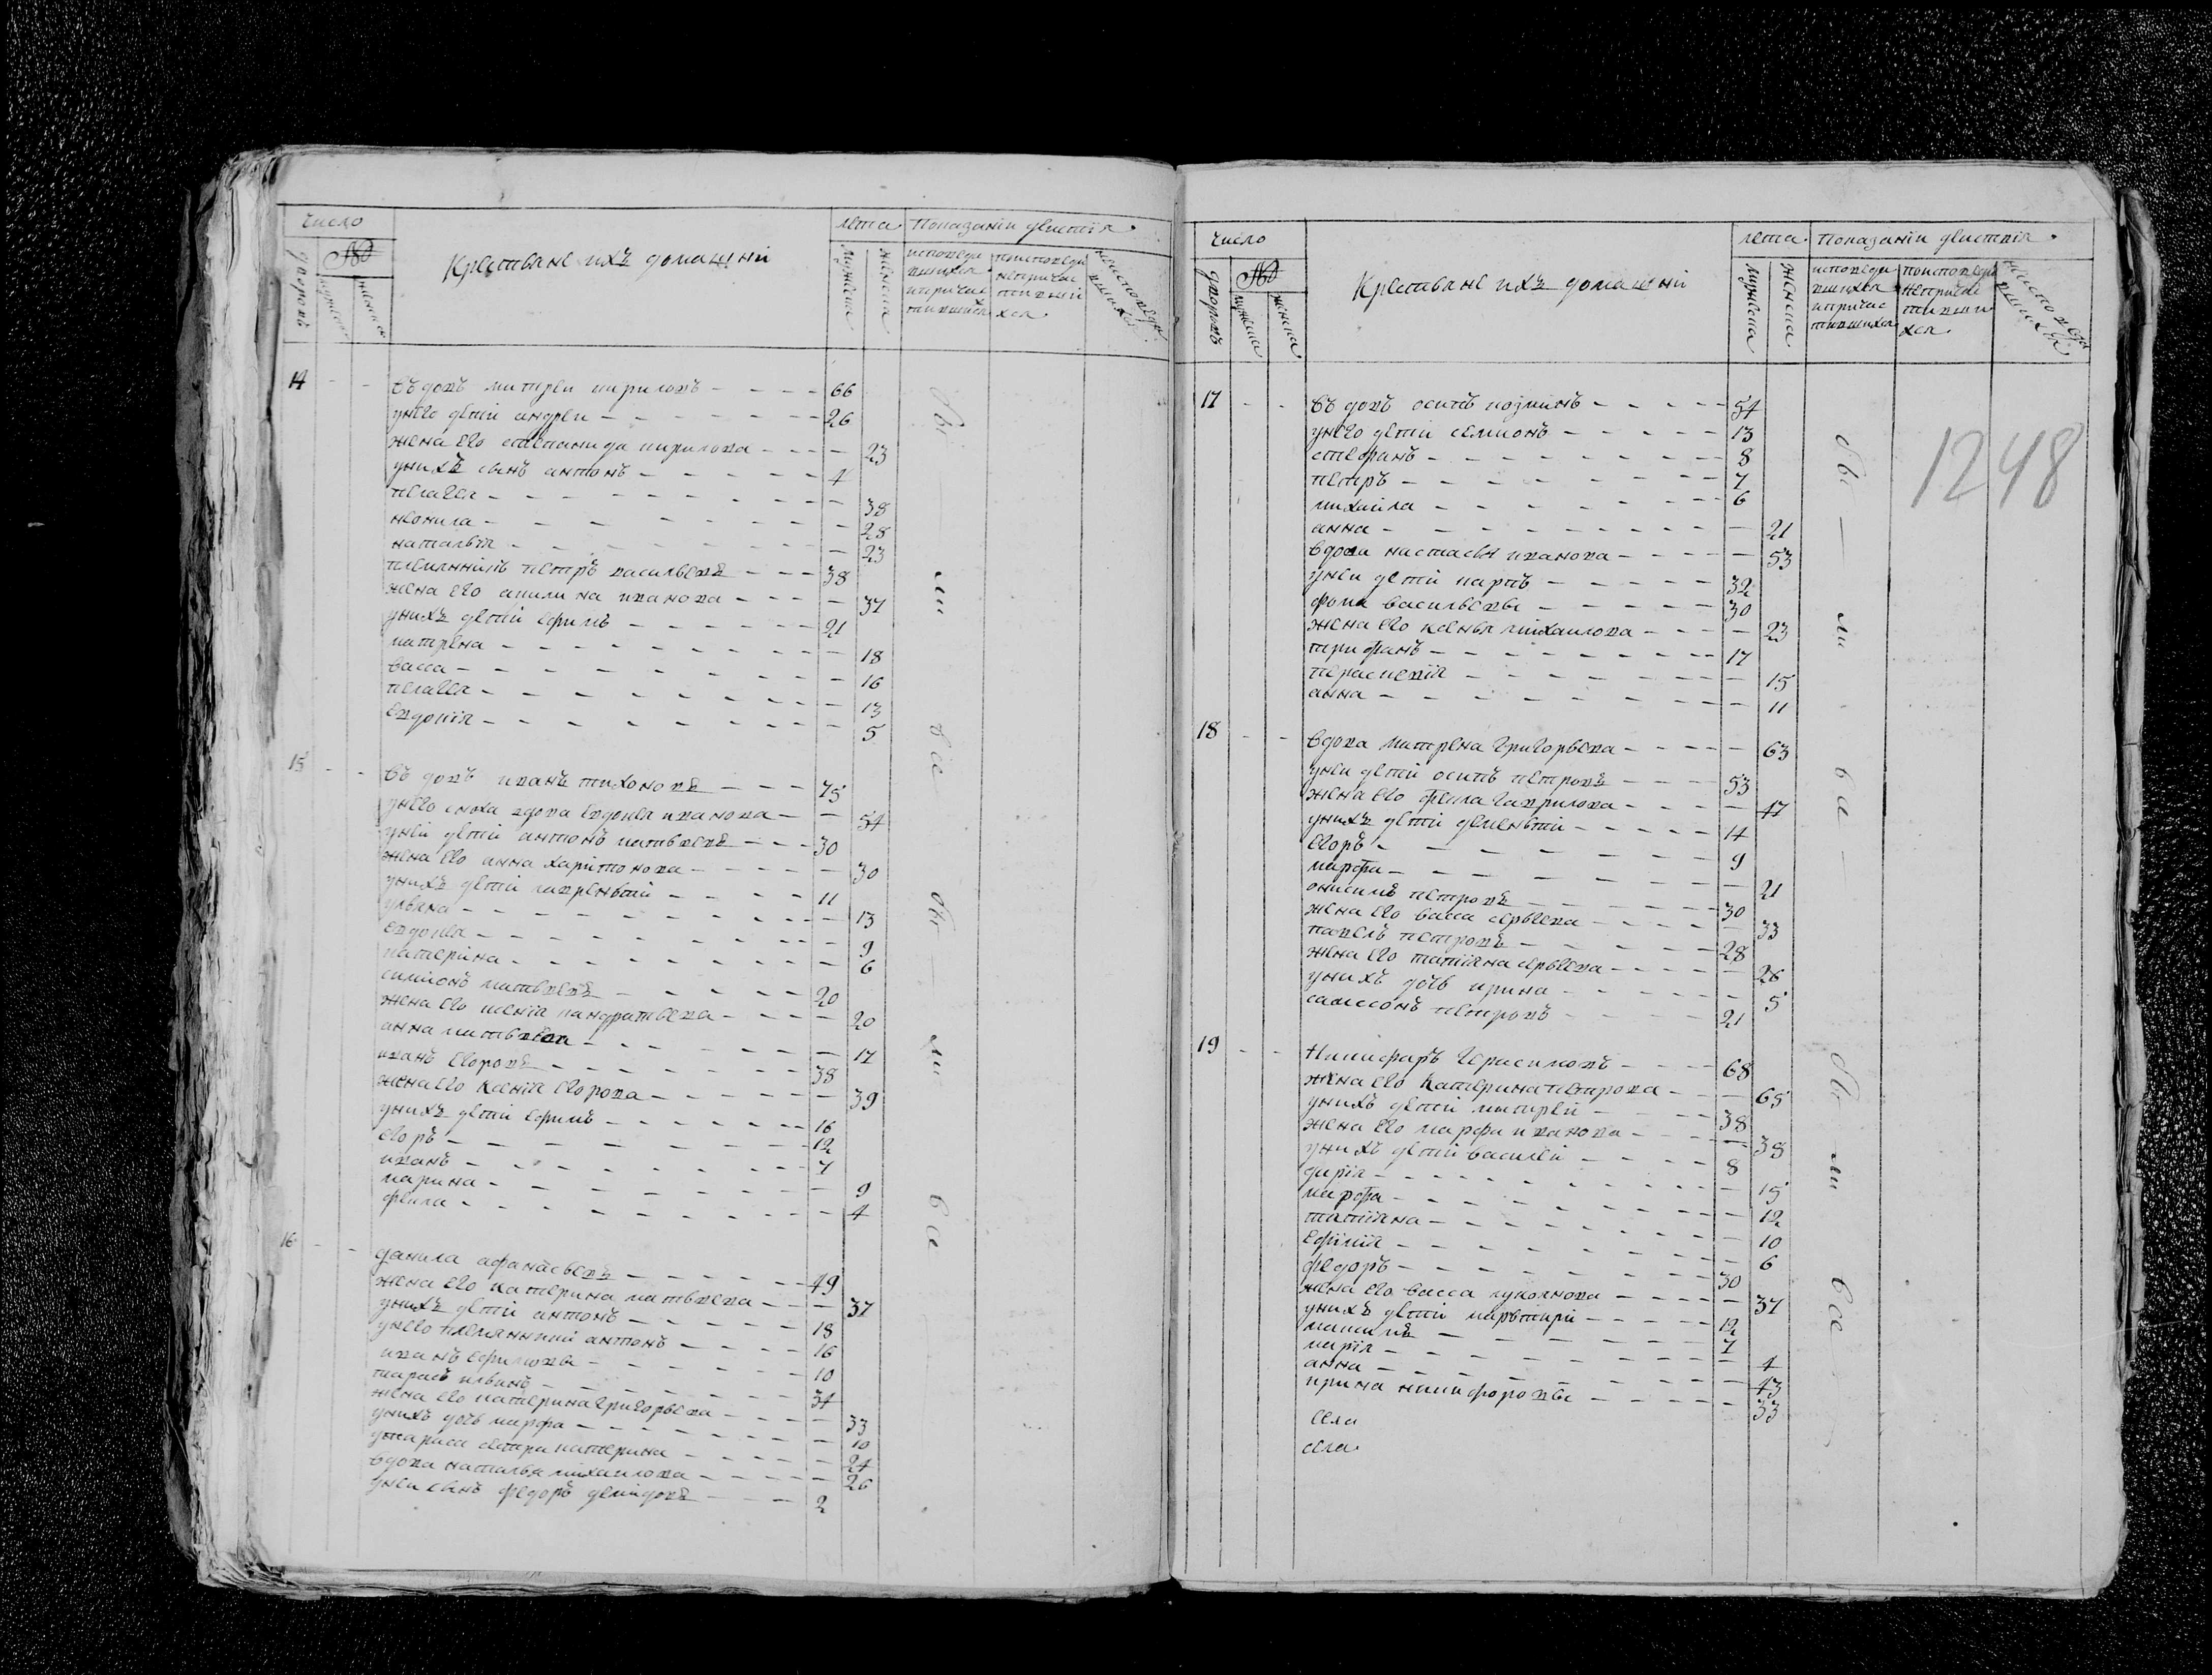 Число
№
дворовъ
мужеска
женска
Крестьяне ихъ домашнїи
лета
мужеска
женска
Показанїи действїя
исповеда
вшихся
ипричас
тившися
поисповеда
непричас
тившїи
хся
неисповеда
вшихся
14 - - вдовъ митреи кириловъ - - - - 66
унего детїи андреи - - - - - - 26
жена его степанида кирилова - - - - 23
унихъ сынъ антонъ - - - - - 4
пелагея - - - - - - - - - 38
неонила - - - - - - - - - 28
наталья - - - - - - - - - 23
племянникъ петръ васильевъ - - - 38
жена его акилина иванова - - - - 37
унихъ детїи ефимъ - - - - - - 21
матрена - - - - - - - - - 18
васса - - - - - - - - - 16
пелагея - - - - - - - - - 13
евдокїя - - - - - - - - - 5
15 - - въ довъ иванъ тихоновъ - - - 75
унего сноха вдова евдокея иванова - - 54
унеи детїи антонъ матвеевъ - - - 30
жена его анна харитонова - - - - - 30
унихъ детїи лаврентїи - - - - 11
ульяна - - - - - - - - - 13
евдокея - - - - - - - - - 9
катерина - - - - - - - - 6
симионъ матвеевъ - - - - - 20
жена его ксенїя кандратьева - - - - 20
анна матвеева - - - - - 17
иванъ егоровъ - - - - - - - 38
жена его ксенїя егорова - - - - - - 39
унихъ детїи ефимъ - - - - - - 16
егоръ - - - - - - - - 12
иванъ - - - - - - - - 7
марина - - - - - - - - 9
фекла - - - - - - - - - 4
16 - - данила афанасьевъ - - - - - 49
жена его катерина матвеева - - - 37
унихъ детїи антонъ - - - - - 18
унего племянники антонъ - - - - 16
иванъ ефимовы - - - - - - 10
тарасъ ильинъ - - - - - - - 34
жена его катерина григорьева - - - - 33
унихъ дочь марфа - - - - - - - 10
утараса сестра катерина - - - - - 24
вдова наталья михаилова - - - - - 26
унеи сынъ федоръ демидовъ - - - 2
бы
ли
все
бы
ли
все
Число
№
дворовъ
мужеска
женска
Крестьяне ихъ домашнїи
лета
мужеска
женска
Показанїи действїя
исповеда
вшихся
ипричас
тившихся
поисповеда
непричас
тивши
хся
неисповеда
вшихся
1248
17 - - въ довъ осипъ козминъ - - - - - 54
унего детїи семионъ - - - - - 13
стефанъ - - - - - - - - 8
петръ - - - - - - - - 7
михаила - - - - - - - 6
анна - - - - - - - - 21
вдова настасья иванова - - - - - 53
унеи детїи карпъ - - - - - 32
фома васильевы - - - - - 30
жена его ксенья михаилова - - - - 23
трифанъ - - - - - - - - 17
пераскевїя - - - - - - - 15
анна - - - - - - - - 11
18 - - вдова матрена григорьева - - - - - 63
унеи детїи осипъ петровъ - - - 53
жена его фекла гаврилова - - - - 47
унихъ детїи дементїи - - - - - 14
егоръ - - - - - - - - 9
марфа - - - - - - - - 21
онисимъ петровъ - - - - - - 30
жена его васса сергеева - - - - - 33
павелъ петровъ - - - - - - 28
жена его татїяна сергеева - - - - - 26
унихъ дочь ирина - - - - - - 5
самсонъ петровъ - - - - - 21
19 - - Никифаръ Герасимовъ - - - - 68
жена его Катерина петрова - - - 65
унихъ детїи митреи - - - - 38
жена его марфа иванова - - - - 38
унихъ детїи василеи - - - - 8
дарїя - - - - - - - - - 15
марфа - - - - - - - - 12
татїяна - - - - - - - - 10
ефимїя - - - - - - - - 6
федоръ - - - - - - - - 30
жена его васса лукоянова - - - - - 37
унихъ детїи - - - - - 12
максимъ - - - - - - - 7
марїя - - - - - - - - 4
анна - - - - - - - - 13
ирина никифоровы - - - - - 33
села
села
бы
ли
ва
бы
ли
все